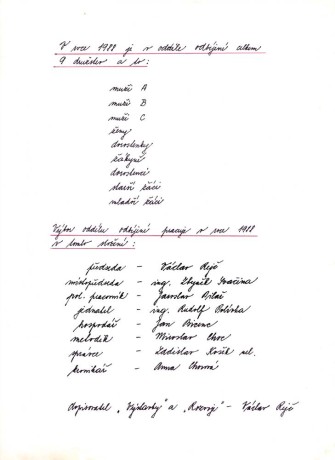 V roce 1988 je v oddíle odbíjené celkem
9 družstev a to:
muži A
muži B
muži C
ženy
dorostenky
žákyně
dorostenci
starší žáci
mladší žáci
Výbor oddílu odbíjené pracuje v roce 1988
v tomto složení:
předseda - Václav
místopředseda - ing. Zbyněk
pol. pracovník - Jaroslav
jednatel - ing. Rudolf Polívka
hospodář - Jan
metodik - Miroslav Choc
správce - Ladislav Košík ml.
kronikář - Anna
Dopisovatel „Výstavby" a „Rozvoj" - Václav